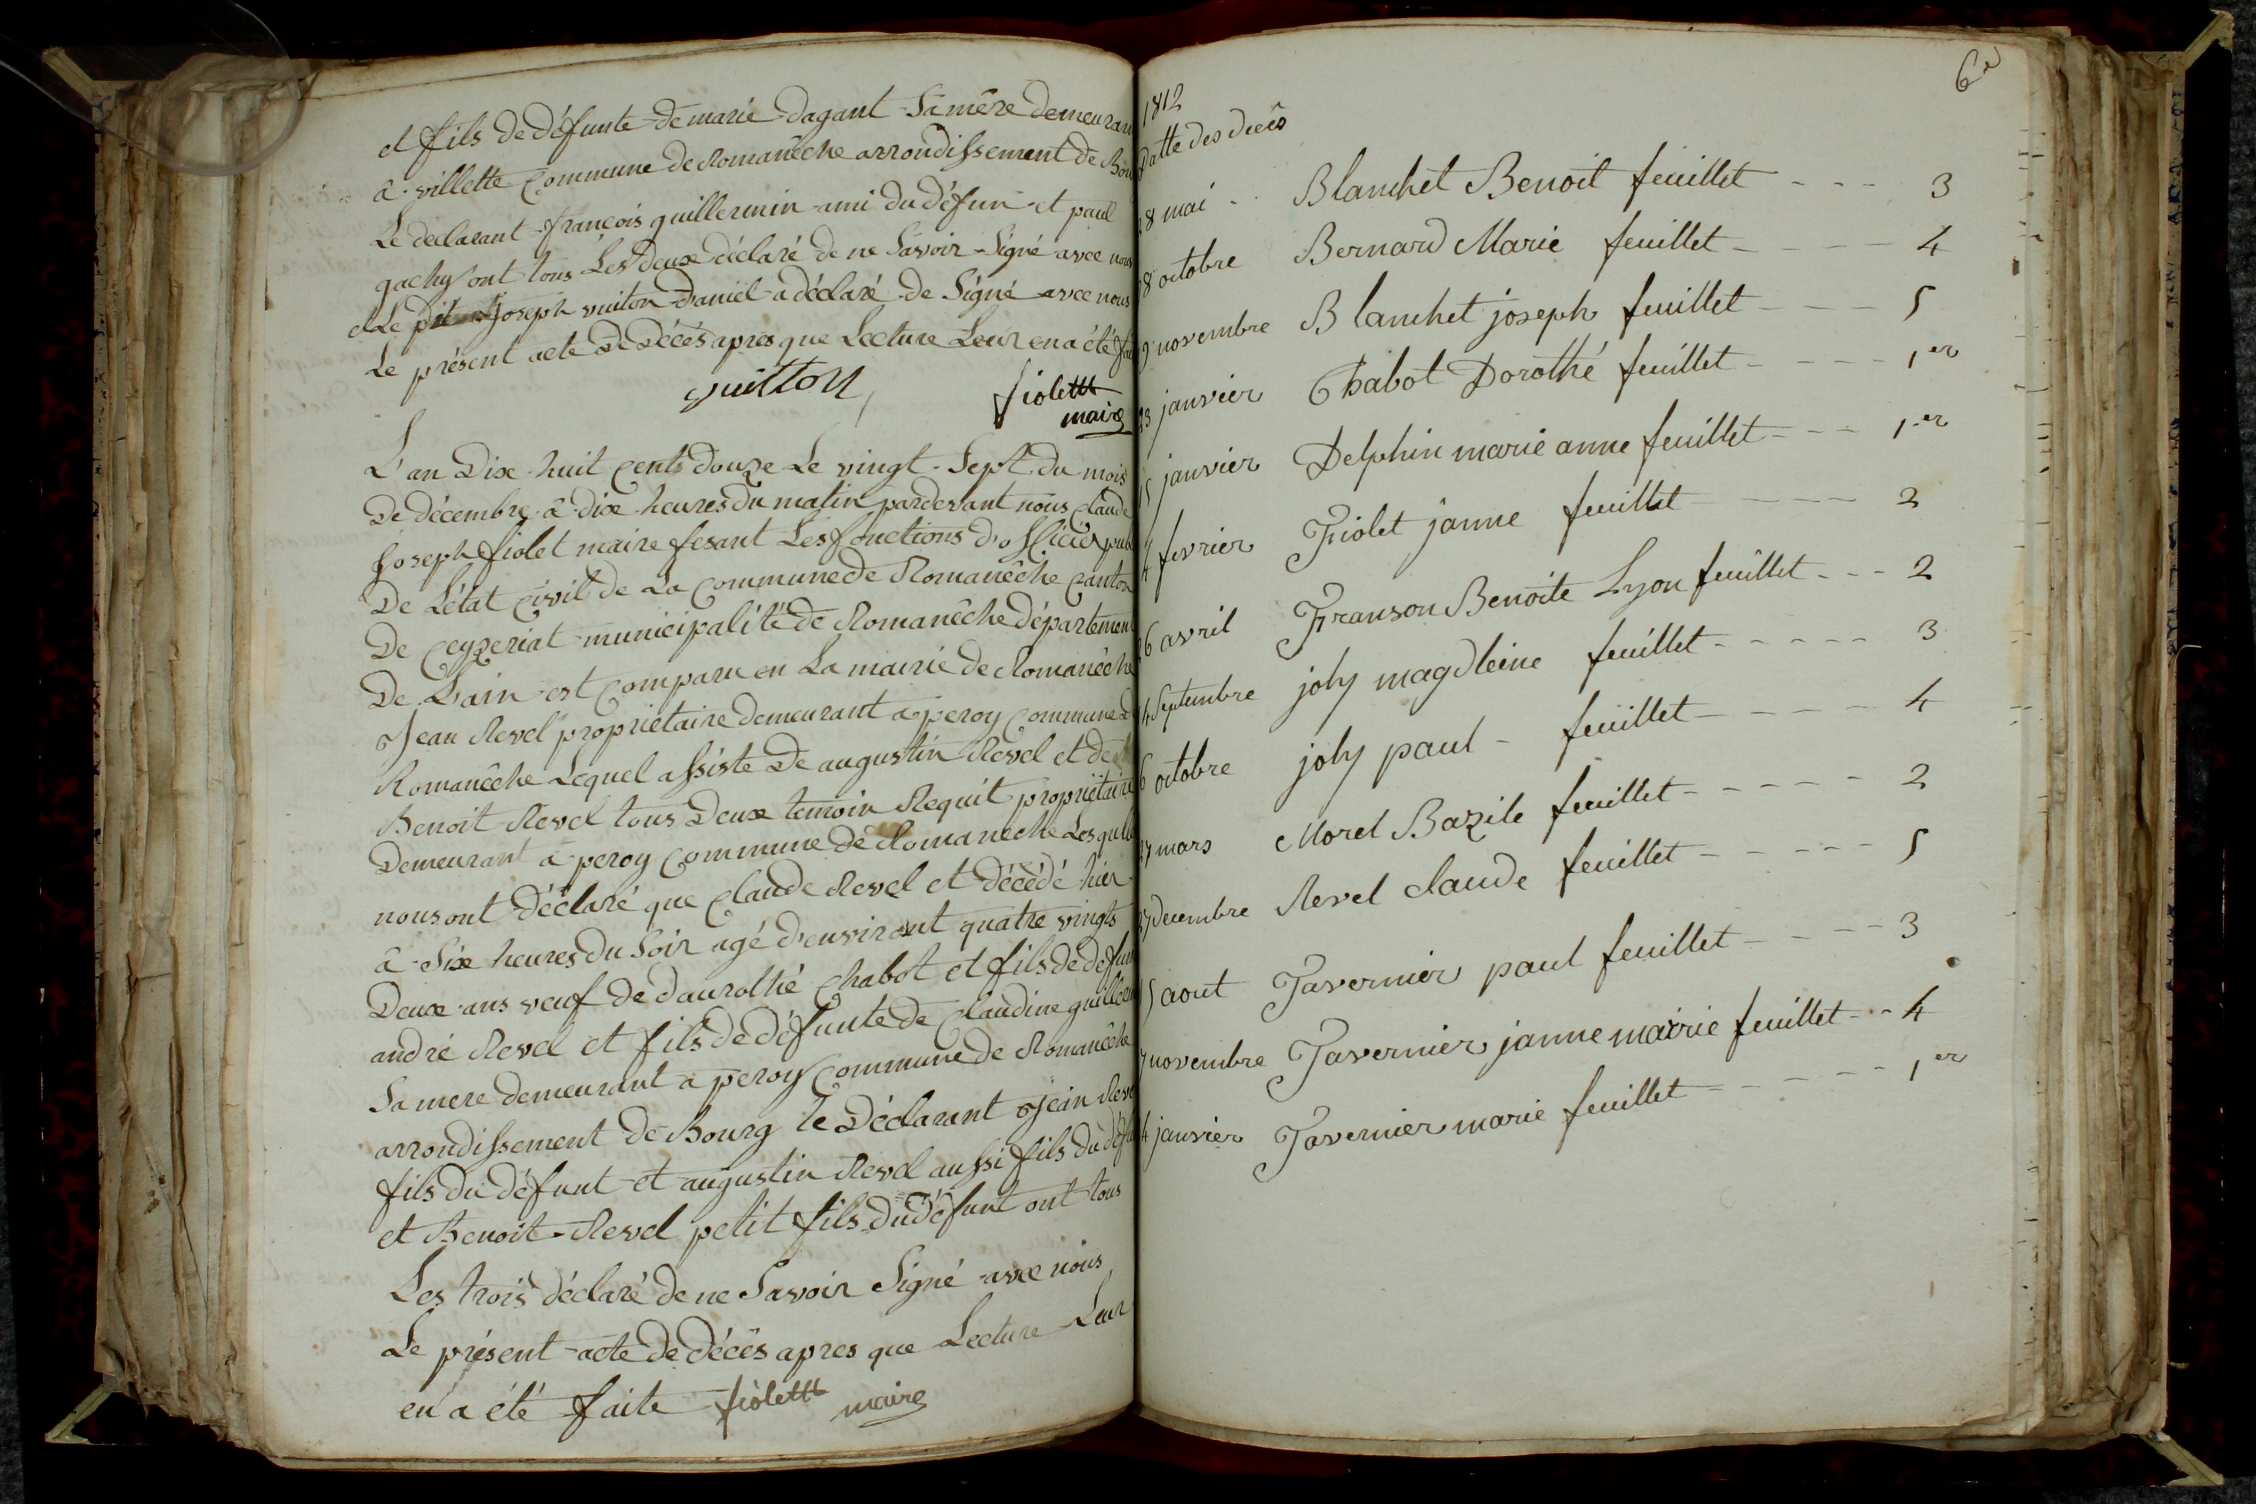 et fils de défunte de marie dagant Sa mêre demeuran
à villette Commune de Romanêche arrondissement de Bou
Le declarant françois guillermin ami du défun et paul
gachy ont tous Les deux déclaré de ne Savoir Signé avec nous
et Le dit Joseph vuiton Daniel a déclaré de Signé avec nous
Le présent acte De Décès apres que Lecture Leur en a été fai
vuitton
fiolettt
maire
L'an Dix huit Cents douze Le vingt Sept du mois
De décembre à dix heures du matin pardevant nous Claude
Joseph fiolet maire fesant Les fonctions d'officier pub
De L'état Civil de La Commune de Romanêche Canton
De Ceyzeriat municipalité de Romanêche département
De L'ain est Comparu en La mairie de Romanêche
Jean Revel propriétaire demeurant à peroy Commune d
Romanêche Lequel assiste De augustin Revel et de
Benoit Revel tous Deux temoin Requit propriétaire
Demeurant à peroy Commune de Romaneche Lesquell
nous ont déclaré que Claude Revel et décédé hier
à Six heures du Soir agé d'environt quatre vingts
Deux ans veuf de daurothé Chabot et fils de défun
andré Revel et fils de défunte de Claudine guillerm
Sa mere demeurant a peroy Commune de Romanêche
arrondissement de Bourg le Déclarant Jean Reve
fils du défunt et augustin Revel aussi fils du défu
et Benoit Revel petit fils du défunt ont tous
Les trois déclaré de ne Savoir Signé avec nous
Le présent acte de décês apres que Lecture Leur
en a été faite fiolettt maire
6e
1812
Datte des decês
28 mai Blanchet Benoit feuillet 3
8 octobre Bernard Marie feuillet 4
9 novembre Blanchet joseph feuillet 5
23 janvier Chabot Dorothé feuillet 1er
15 janvier Delphin marie anne feuillet 1er
4 fevrier Fiolet janne feuillet 2
26 avril Franson Benoite Lyon feuillet 2
4 Septembre joly magdleine feuillet 3
6 octobre joly paul feuillet 4
27 mars Morel Bazile feuillet 2
27 decembre Revel claude feuillet 5
5 aout Tavernier paul feuillet 3
7 novembre Tavernier janne mairie feuillet 4
4 janvier Tavernier marie feuillet 1er